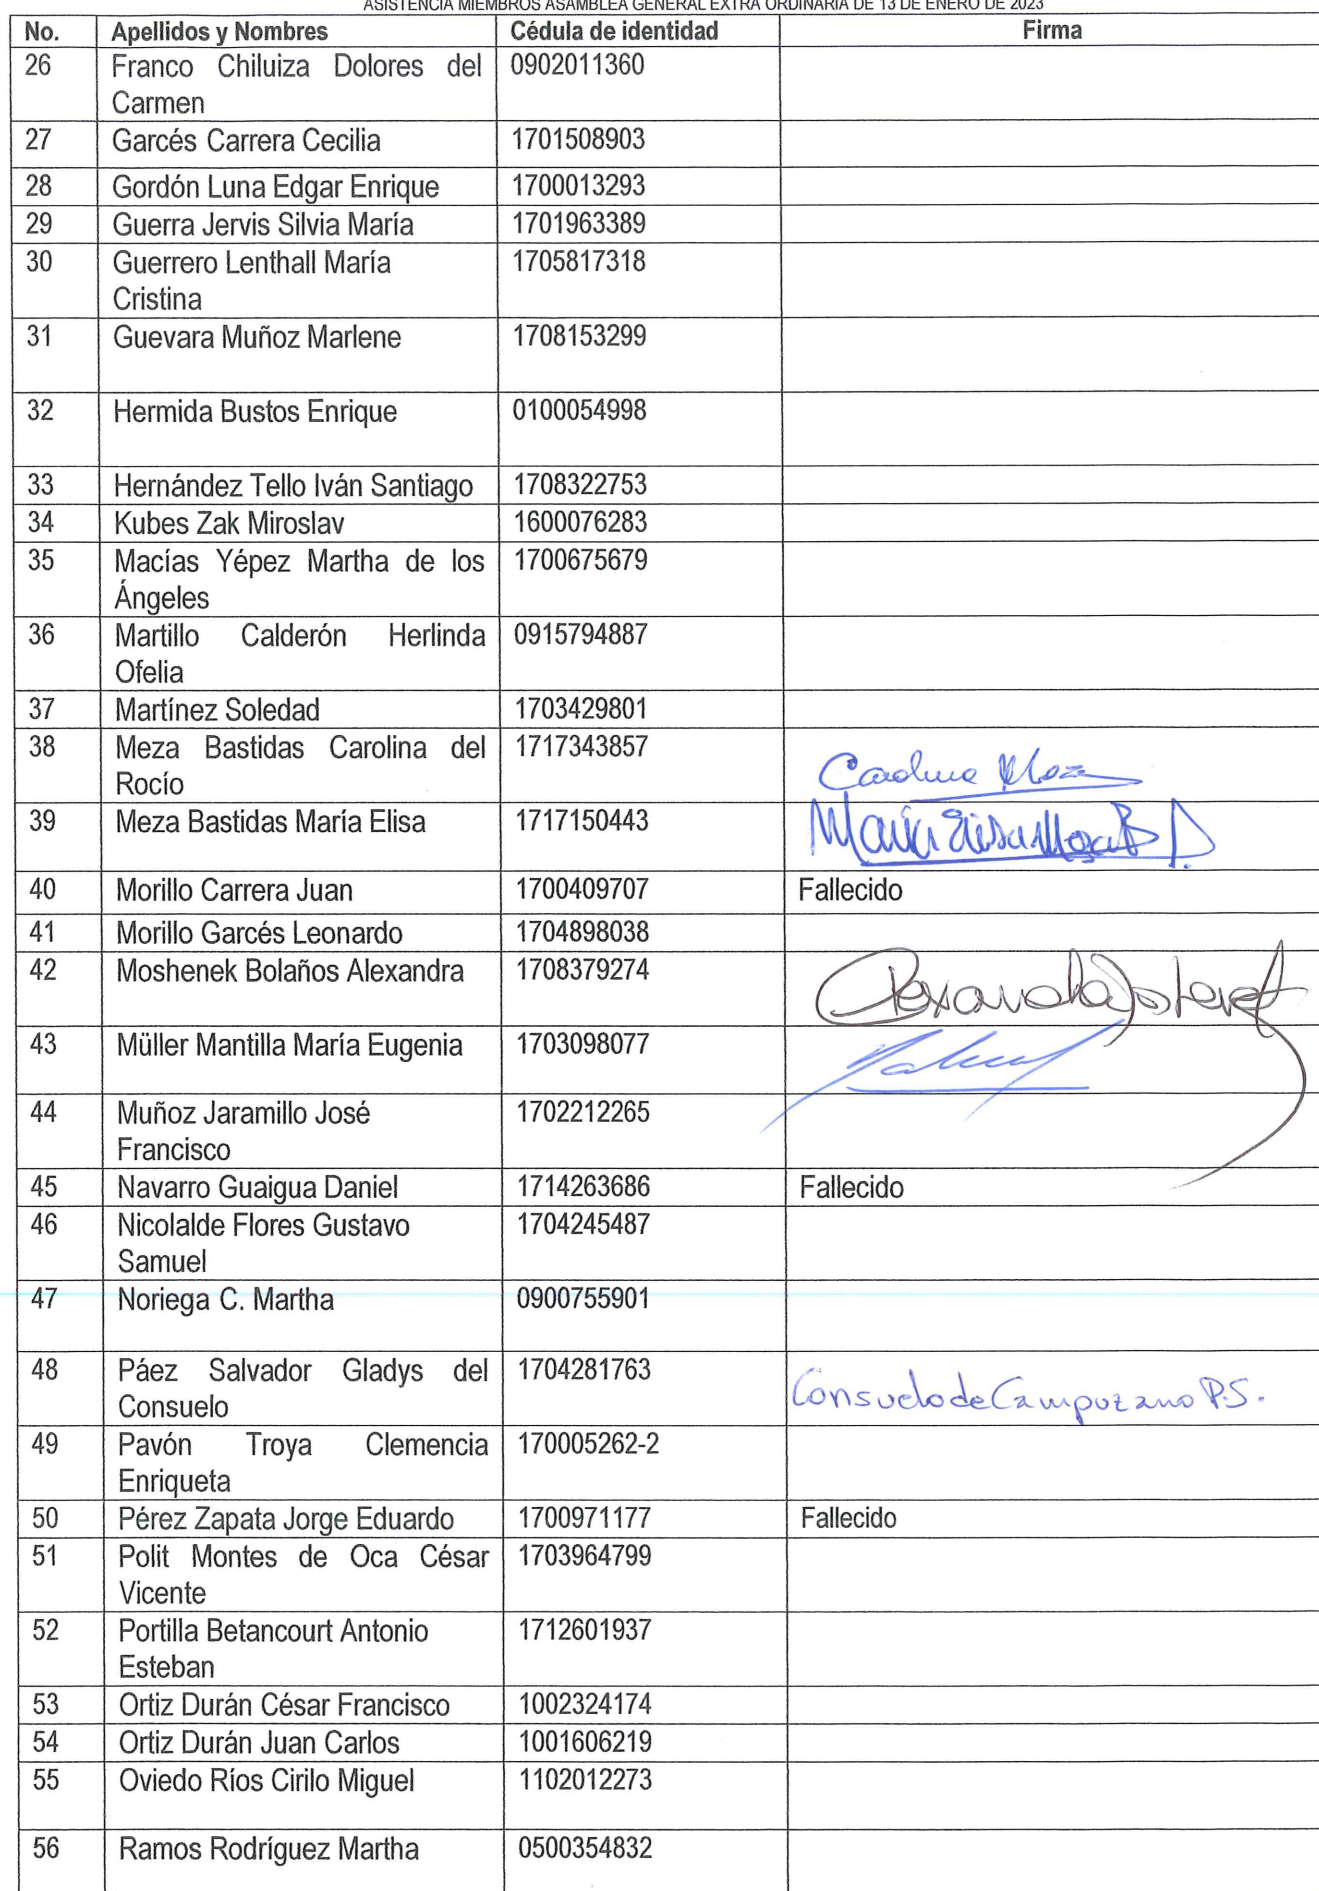 ASISTENCIA MIEMBROS ASAMBLEA GENERAL EXTRA ORDINARIA DE 13 DE ENERO DE 2023
No. Apellidos y Nombres Cédula de identidad Firma
26 Franco Chiluiza Dolores del 0902011360
Carmen
27 Garcés Carrera Cecilia 1701508903
28 Gordón Luna Edgar Enrique 1700013293
29 Guerra Jervis Silvia María 1701963389
30 Guerrero Lenthall María 1705817318
Cristina
31 Guevara Muñoz Marlene 1708153299
32 Hermida Bustos Enrique 0100054998
33 Hernández Tello Iván Santiago 1708322753
34 Kubes Zak Miroslav 1600076283
35 Macías Yépez Martha de los 1700675679
Ángeles
36 Martillo Calderón Herlinda 0915794887
Ofelia
37 Martínez Soledad 1703429801
38 Meza Bastidas Carolina del 1717343857
Rocío Carolina Meza
39 Meza Bastidas María Elisa 1717150443 María Elisa Meza B
40 Morillo Carrera Juan 1700409707 Fallecido
41 Morillo Garcés Leonardo 1704898038
42 Moshenek Bolaños Alexandra 1708379274
43 Müller Mantilla María Eugenia 1703098077
44 Muñoz Jaramillo José 1702212265
Francisco
45 Navarro Guaigua Daniel 1714263686 Fallecido
46 Nicolalde Flores Gustavo 1704245487
Samuel
47 Noriega C. Martha 0900755901
48 Páez Salvador Gladys del 1704281763
Consuelo Consuelo de Campuzano P.S.
49 Pavón Troya Clemencia 170005262-2
Enriqueta
50 Pérez Zapata Jorge Eduardo 1700971177 Fallecido
51 Polit Montes de Oca César 1703964799
Vicente
52 Portilla Betancourt Antonio 1712601937
Esteban
53 Ortiz Durán César Francisco 1002324174
54 Ortiz Durán Juan Carlos 1001606219
55 Oviedo Ríos Cirilo Miguel 1102012273
56 Ramos Rodríguez Martha 0500354832